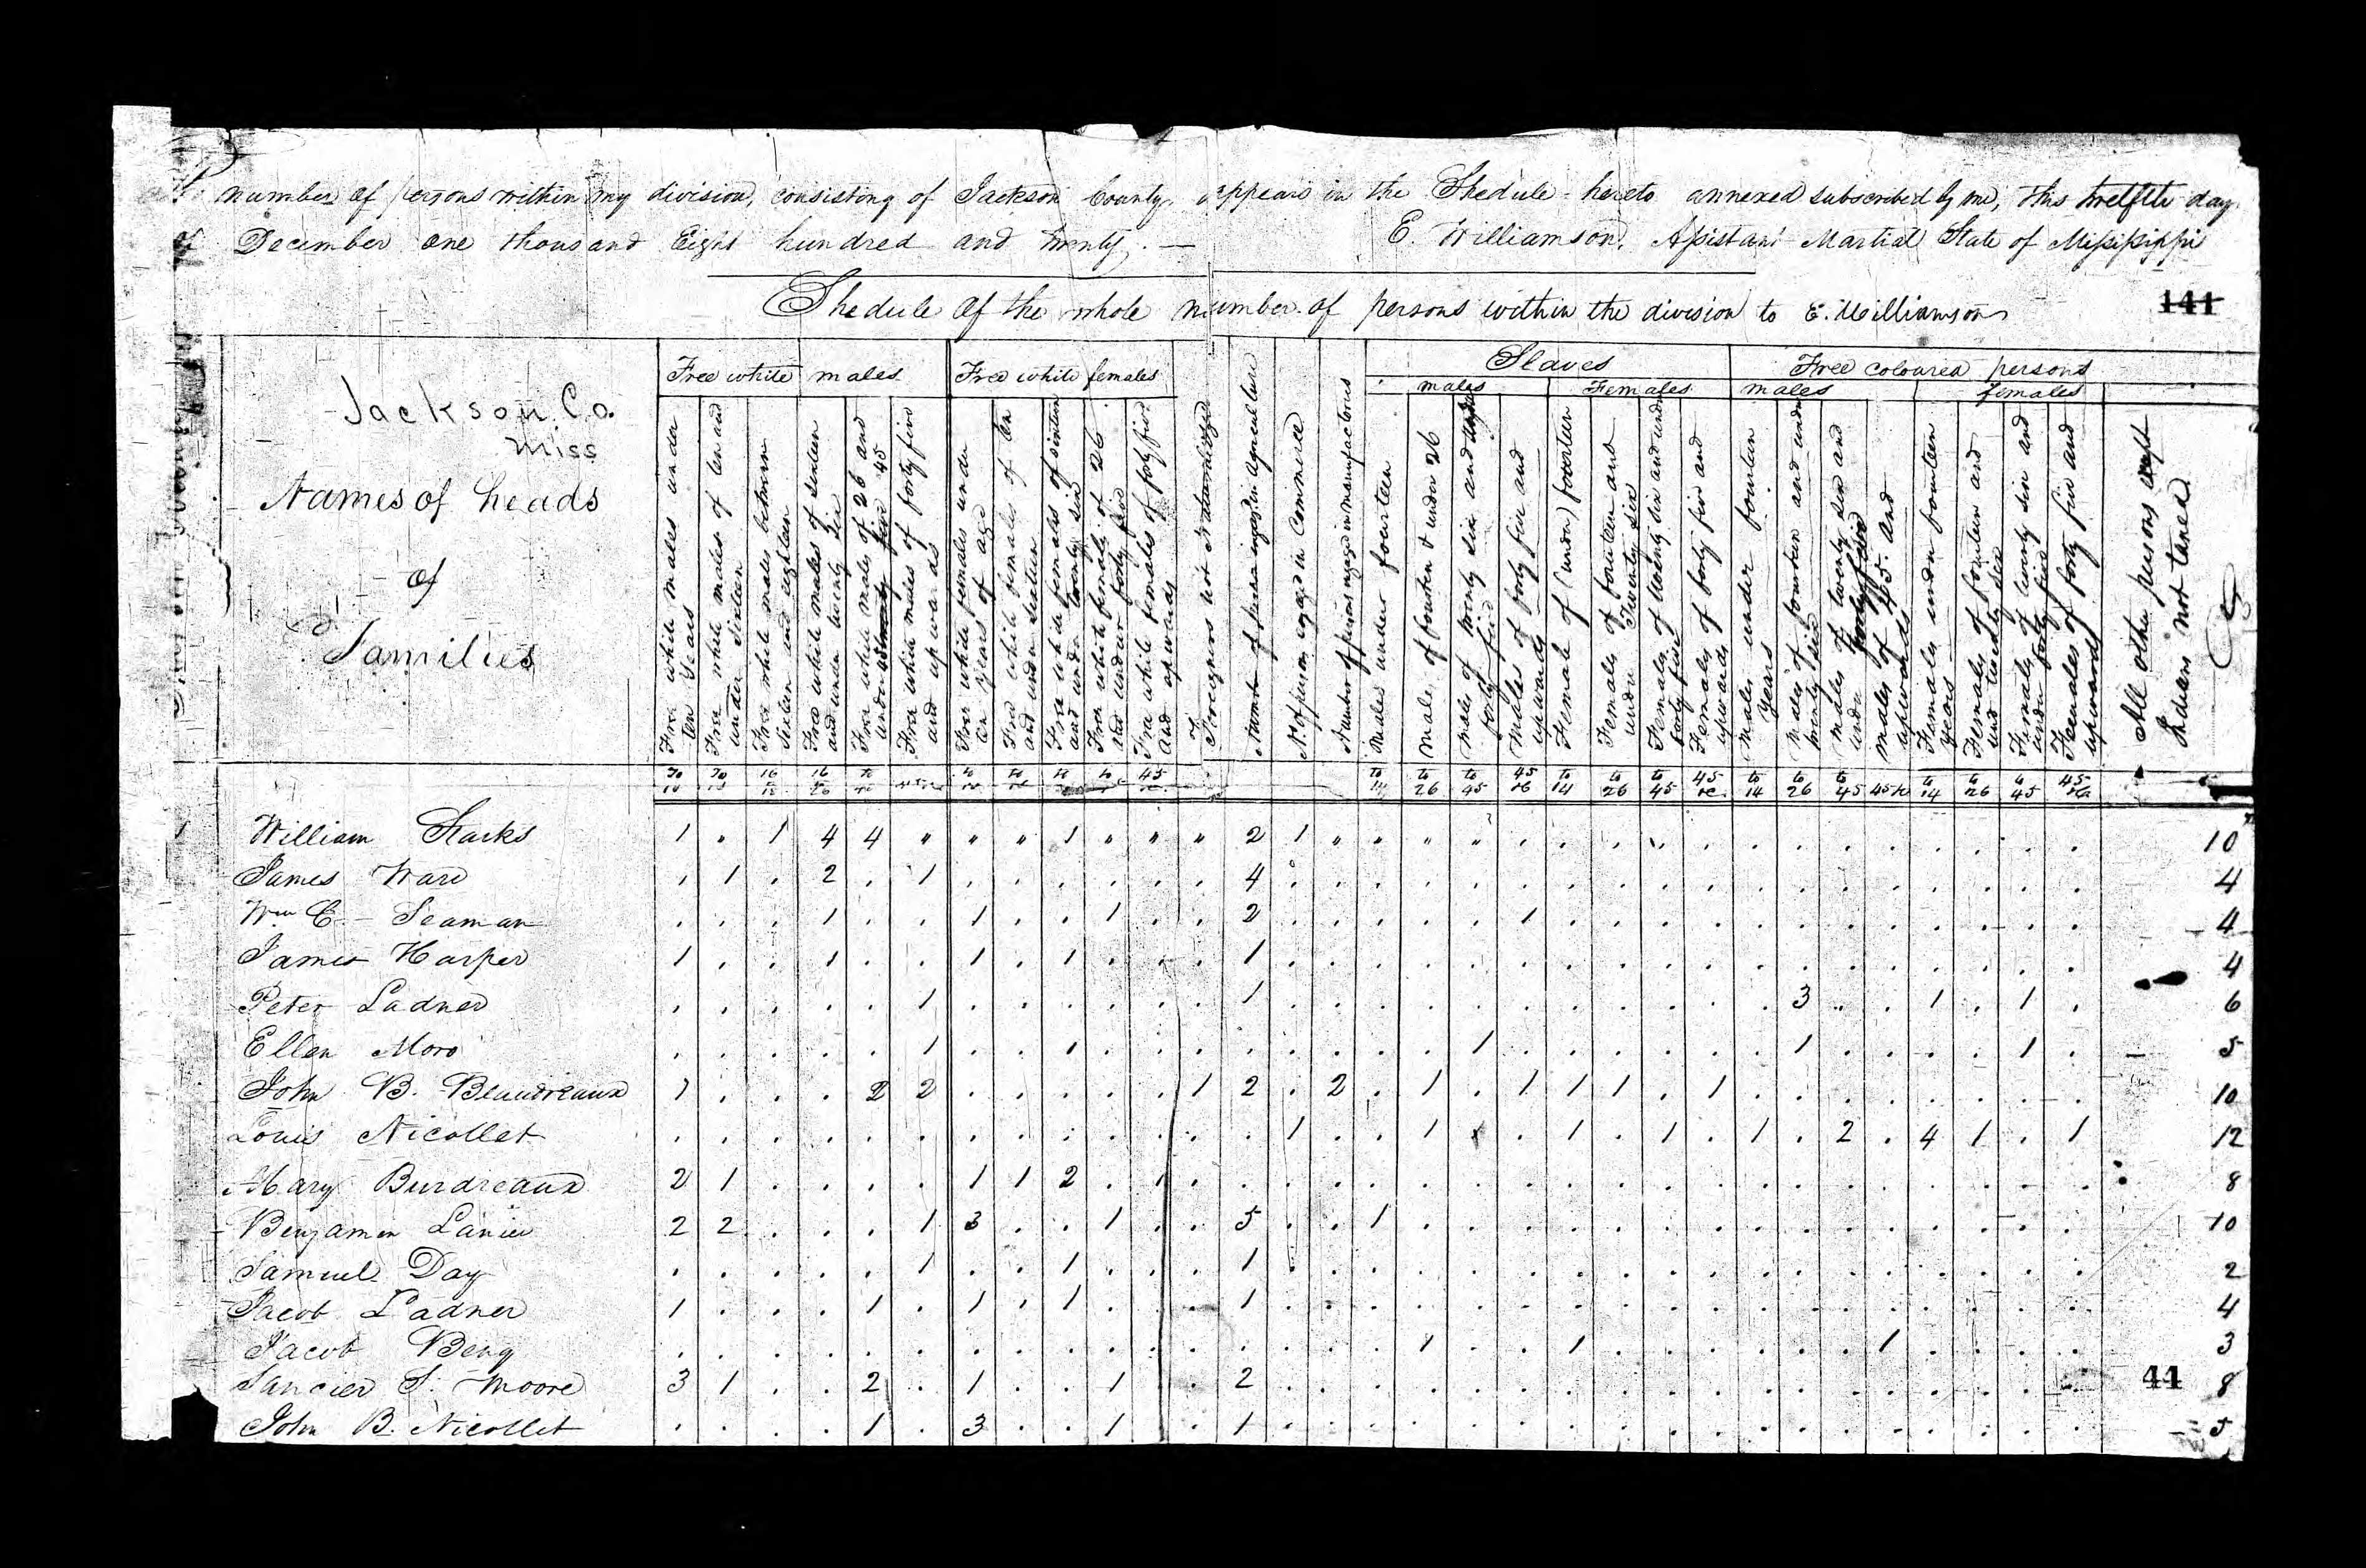 number of persons within my division, consisting of Jackson County, appears in the Shedule hereto annexed subscribed by me, this twelfth day
of December one thousand Eight hundred and twenty. —
E. Williamson, Assistant Martial State of Mississippi
Shedule of the whole number of persons within the division to E. Williamson
141
Jackson Co.
Miss
Names of heads
of
Families
Free white males
Free white females
Slaves
Free coloured persons
males
Females
males
females
Free white males under ten years
Free white males of ten and under sixteen
Free white males between sixteen and eighteen
Free white males of sixteen and under twenty six
Free white males of 26 and under five 45
Free white males of forty five and upwards
Free white females under ten years of age
Free white females of ten and under sixteen
Free white females of sixteen and under twenty six
Free white females of 26 and under forty five
Free white females of forty five and upwards
Foreigners not Naturalized
Number of persons engaged in agriculture
No. of persons engaged in Commerce
Number of persons engaged in manufactories
Males under fourteen
Males of fourteen & under 26
Males of twenty six and under forty five
Males of forty five and upwards
Females of (under) fourteen
Females of fourteen and under Twenty six
Females of twenty six and under forty five
Females of forty five and upwards
Males under fourteen years
Males of fourteen and under twenty six
Males of twenty six and under forty five
Males of 45 and upwards
Females under fourteen years
Females of fourteen and under twenty six
Females of twenty six and under forty five
Females of forty five and upwards
All other persons except Indians not taxed
William Starks 1 " 1 4 4 " " " 1 " " " 2 1 " " " " 10
James Ward . 1 . 2 . 1 . . . . . . 4 . . 4
Wm C. Seaman . . . 1 . . 1 . . 1 . . 2 . . . . . 1 . 4
James Harper 1 . . 1 . . 1 . 1 . . . 1 . . 4
Peter Ladner . . . . . 1 . . . . . . 1 . . 3 . . 1 . 1 . 6
Ellen Moro . . . . . 1 . . 1 . . . . . . . . 1 . . 1 . . . . . 1 . 5
John B. Beaudreaux 1 . . . 2 2 . . . . . 1 2 . 2 . 1 . 1 1 1 . 1 . . 10
Louis Nicollet . . . . . . . . . . . . . 1 . . 1 . . 1 . 1 . 1 . 2 . 4 1 . 1 12
Mary Burdreaux 2 1 . . . . 1 1 2 . 1 . . . 8
Benjamin Lanier 2 2 . . . 1 3 . . 1 . . 5 . . 1 . . 10
Samuel Day . . . . . 1 . . 1 . . . 1 . . 2
Jacob Ladner 1 . . . 1 . 1 . 1 . . . 1 . . 4
Jacob Beng . . . . . . . . . . . . . . . . 1 . . 1 . . . . . . 1 . . . . 3
Sancier S. Moore 3 1 . . 2 . 1 . . 1 . . 2 . . 8
John B. Nicollet . . . . 1 . 3 . . 1 . . 1 . . 5
44